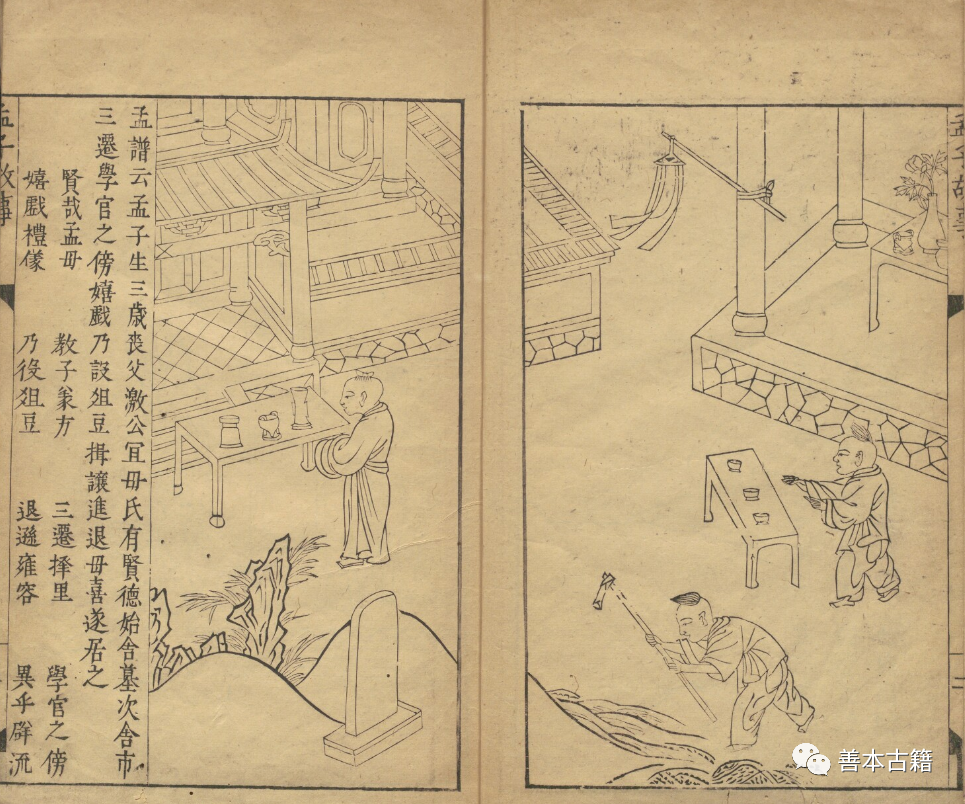 孟子故事
孟譜云孟子生三歳喪父激公宜毋氏有賢德始舍墓次舍市
三遷學官之傍嬉戲乃設俎豆揖讓進退毋喜遂居之
賢哉孟毋 教子義方 三遷擇里 學官之傍
嬉戲禮儀 乃役俎豆 退遜雍容 異乎流
孟子故事
善本古籍